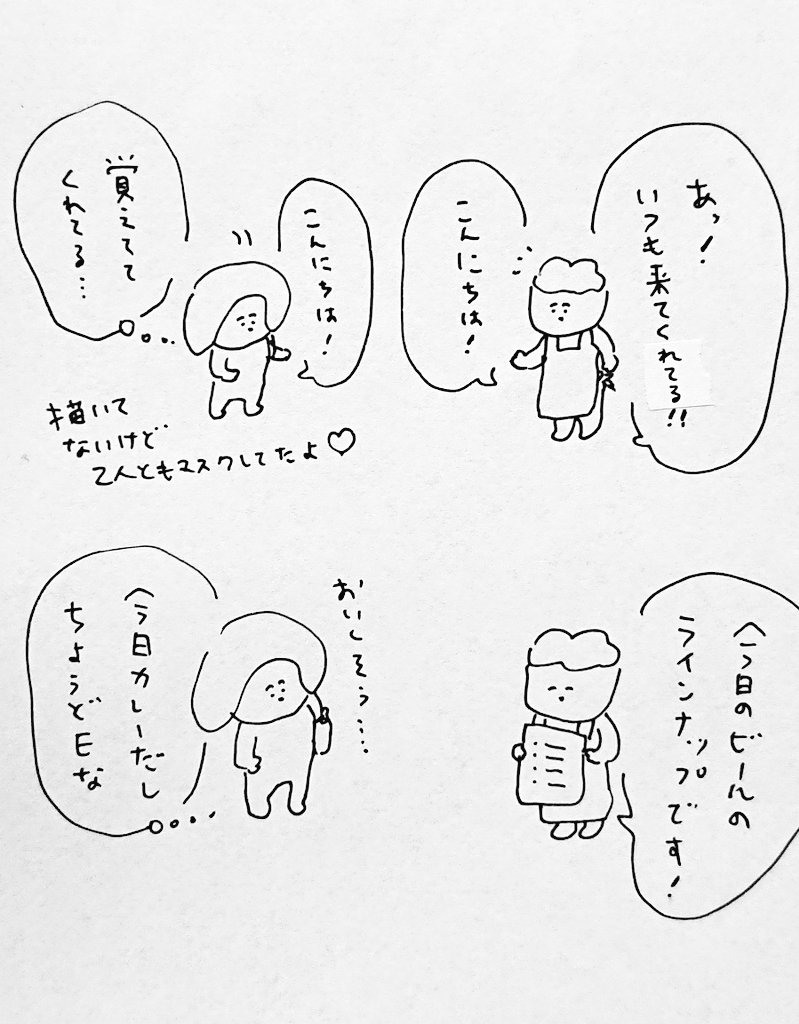 あッ!
いつも来てくれてる!!
こんにちは!
こんにちは!
覚えてて
くれてる…
描いて
ないけど
2人ともマスクしてたよ♡
今日のビールの
ラインナップです!
おいしそう….
今日カレーだし
ちょうどEな